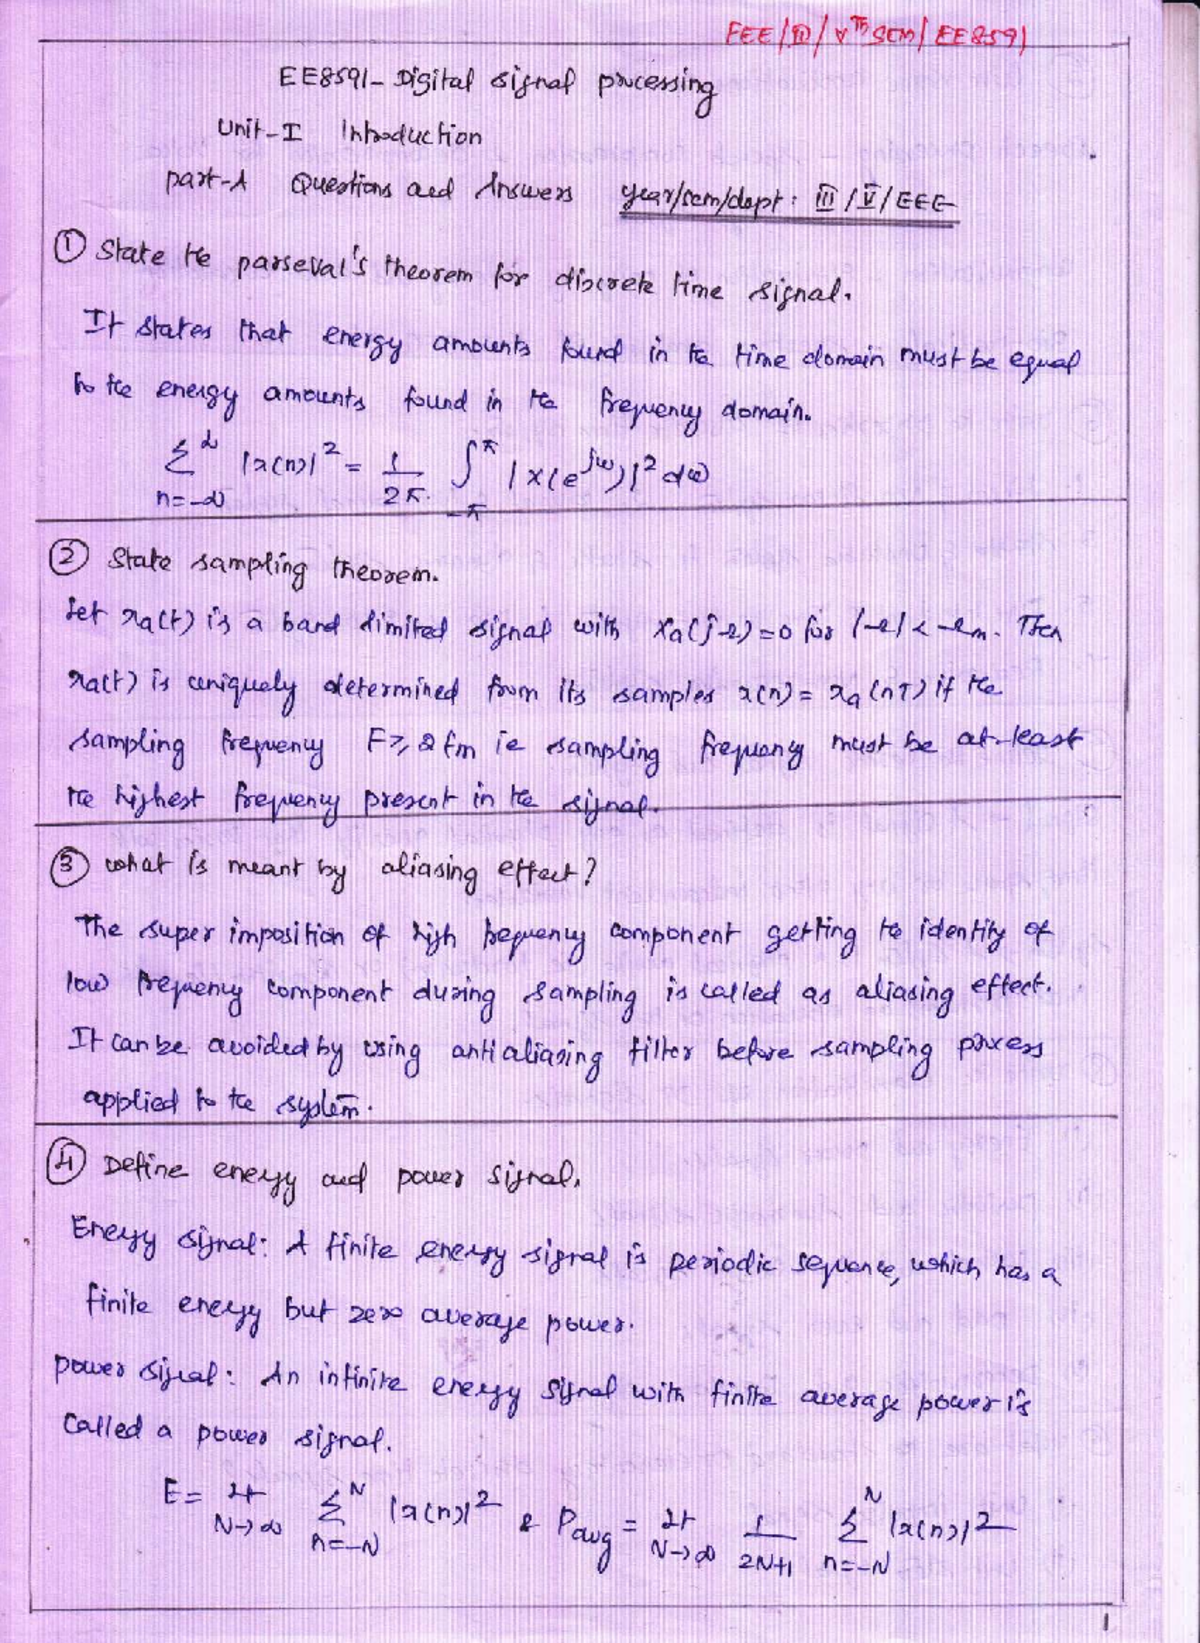 EEE/III/Vth SEM/EE8591
EE8591-Digital signal processing
Unit-I Introduction
part-A Questions and Answers year/sem/dept: III/V/EEE
① State the parseval's theorem for discrete time signal.
It states that energy amounts found in the time domain must be equal
to the energy amounts found in the frequency domain.
∑_{n=-∞}^{∞} |x(n)|² = 1/2π ∫_{-π}^{π} |X(e^{jω})|² dω
② State sampling theorem.
Let xa(t) is a band limited signal with Xa(jΩ)=0 for |Ω| < Ωm. Then
xa(t) is uniquely determined from its samples x(n) = xa(nT) if the
sampling frequency F ≥ 2fm ie sampling frequency must be at-least
the highest frequency present in the signal.
③ what is meant by aliasing effect?
The super imposition of high frequency component getting the identity of
low frequency component during sampling is called as aliasing effect.
It can be avoided by using anti aliasing filter before sampling process
applied to the system.
④ Define energy and power signal.
Energy signal: A finite energy signal is periodic sequence, which has a
finite energy but zero average power.
power signal: An infinite energy signal with finite average power is
called a power signal.
E = Lt_{N→∞} ∑_{n=-N}^{N} |x(n)|² & Pavg = Lt_{N→∞} 1/2N+1 ∑_{n=-N}^{N} |x(n)|²
1